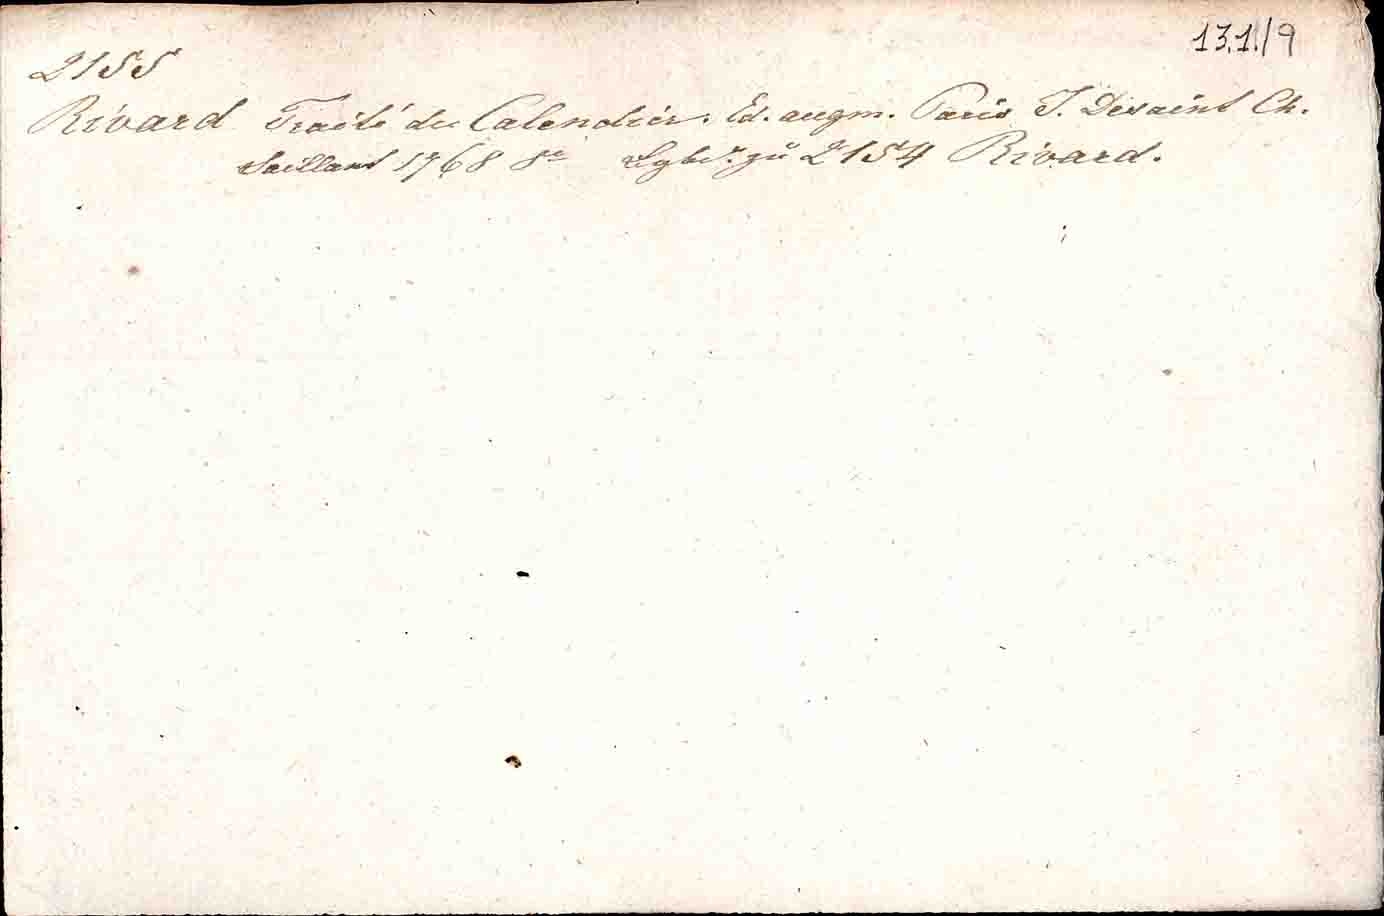 13.1./9
2155
Rivard Traité du Calendrier. Ed. augm. Paris J. Desaint Ch.
Saillant 1768 8º zu 2154 Rivard.